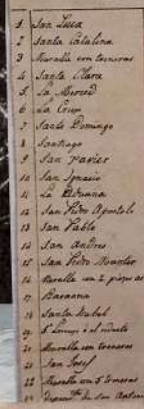 1 San Luca
2 Santa Catalina
3 Muralla con troneras
4 Santa Clara
5 La Merced
6 La Cruz
7 Santo Domingo
8 Santiago
9 San Xavier
10 San Ignacio
11 La Aduana
12 San Pedro Apostol
13 San Pablo
14 San Andres
15 San Pedro
16 Muralla con 2
17 Baraona
18 Santa Isabel
19 el reducto
20 Muralla con troneras
21 San Josef
22 Muralla con 5 troneras
23 de San Anton